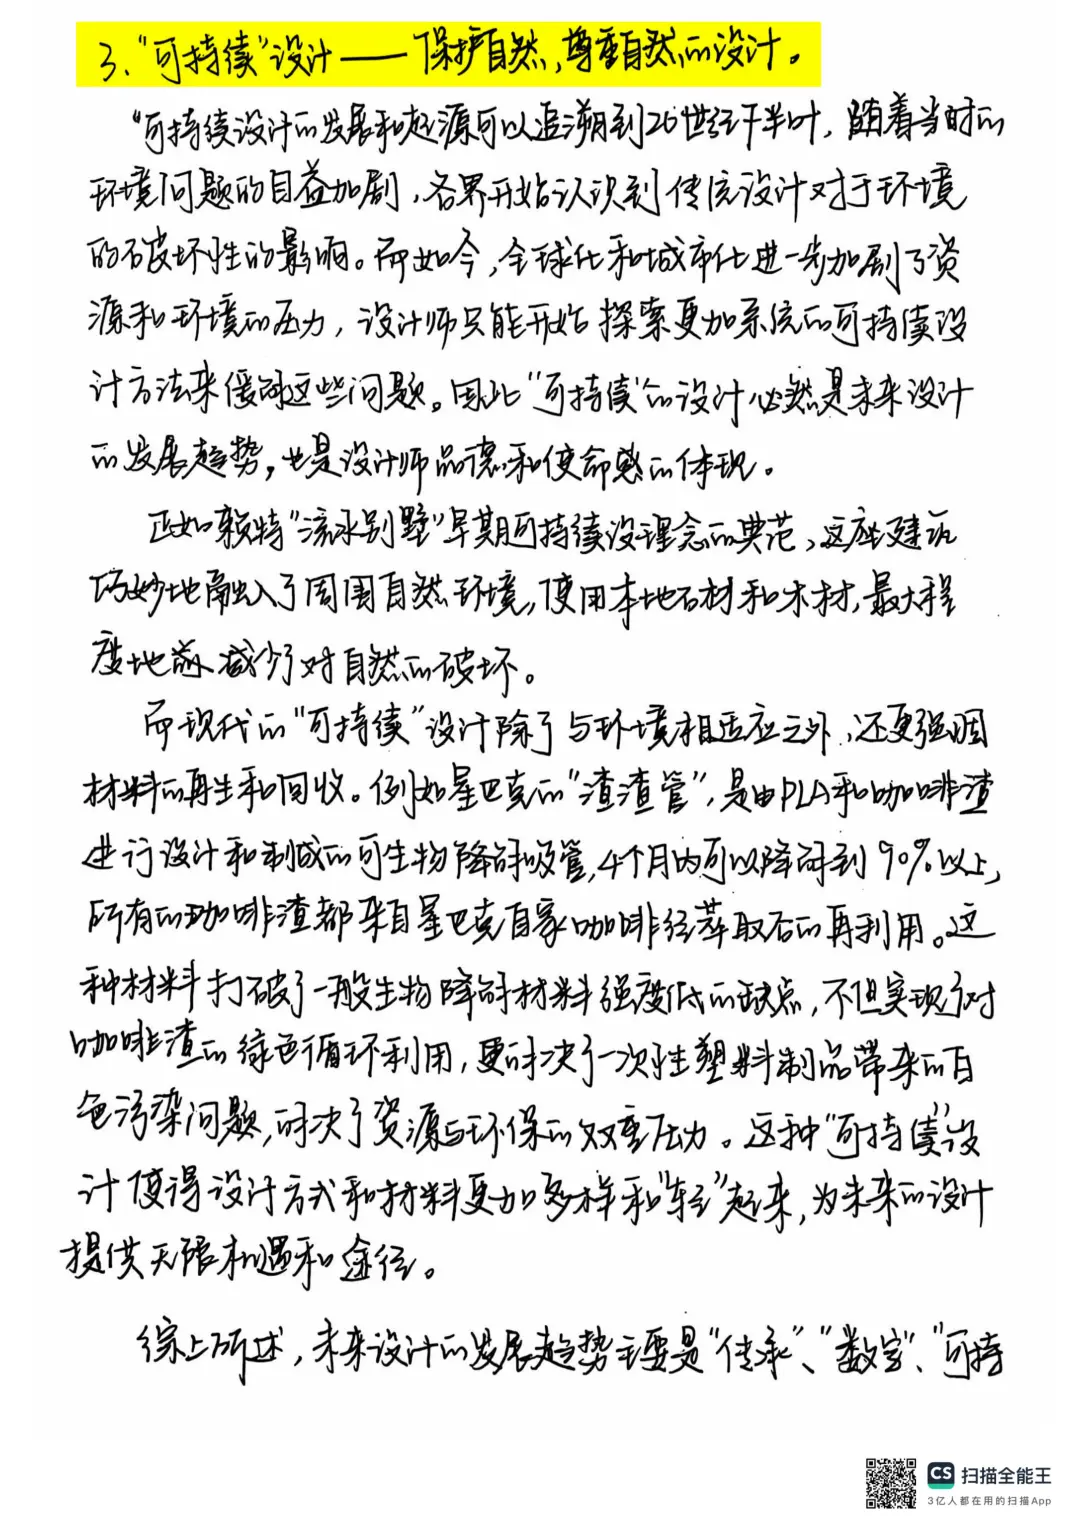 3、“可持续”设计——保护自然,尊重自然的设计。
“可持续设计的发展和起源可以追溯到20世纪下半叶，随着当时的
环境问题的日益加剧,各界开始认识到传统设计对于环境
的破坏性的影响。而如今,全球化和城市化进一步加剧了资
源和环境的压力,设计师只能开始探索更加系统的可持续设
计方法来缓解这些问题。因此“可持续”的设计必然是未来设计
的发展趋势,也是设计师品德和使命感的体现。
正如赖特“流水别墅”早期可持续设理念的典范,这座建筑
巧妙地融入了周围自然环境,使用本地石材和木材,最大程
度地减少了对自然的破坏。
而现代的“可持续”设计除了与环境相适应之外,还更强调
材料的再生和回收。例如星巴克的“渣渣管”,是由PLA和咖啡渣
进行设计和制成的可生物降解吸管,4个月内可以降解到90%以上,
所有的咖啡渣都来自星巴克自家咖啡经萃取后的再利用。这
种材料打破了一般生物降解材料强度低的缺点,不但实现了对
咖啡渣的绿色循环利用,更解决了一次性塑料制品带来的白
色污染问题,解决了资源与环保的双重压力。这种“可持续”设
计使得设计方式和材料更加多样和“轻”起来,为未来的设计
提供无限机遇和途径。
综上所述,未来设计的发展趋势主要是“传承”、“数字”、“可持
CS 扫描全能王
3亿人都在用的扫描App